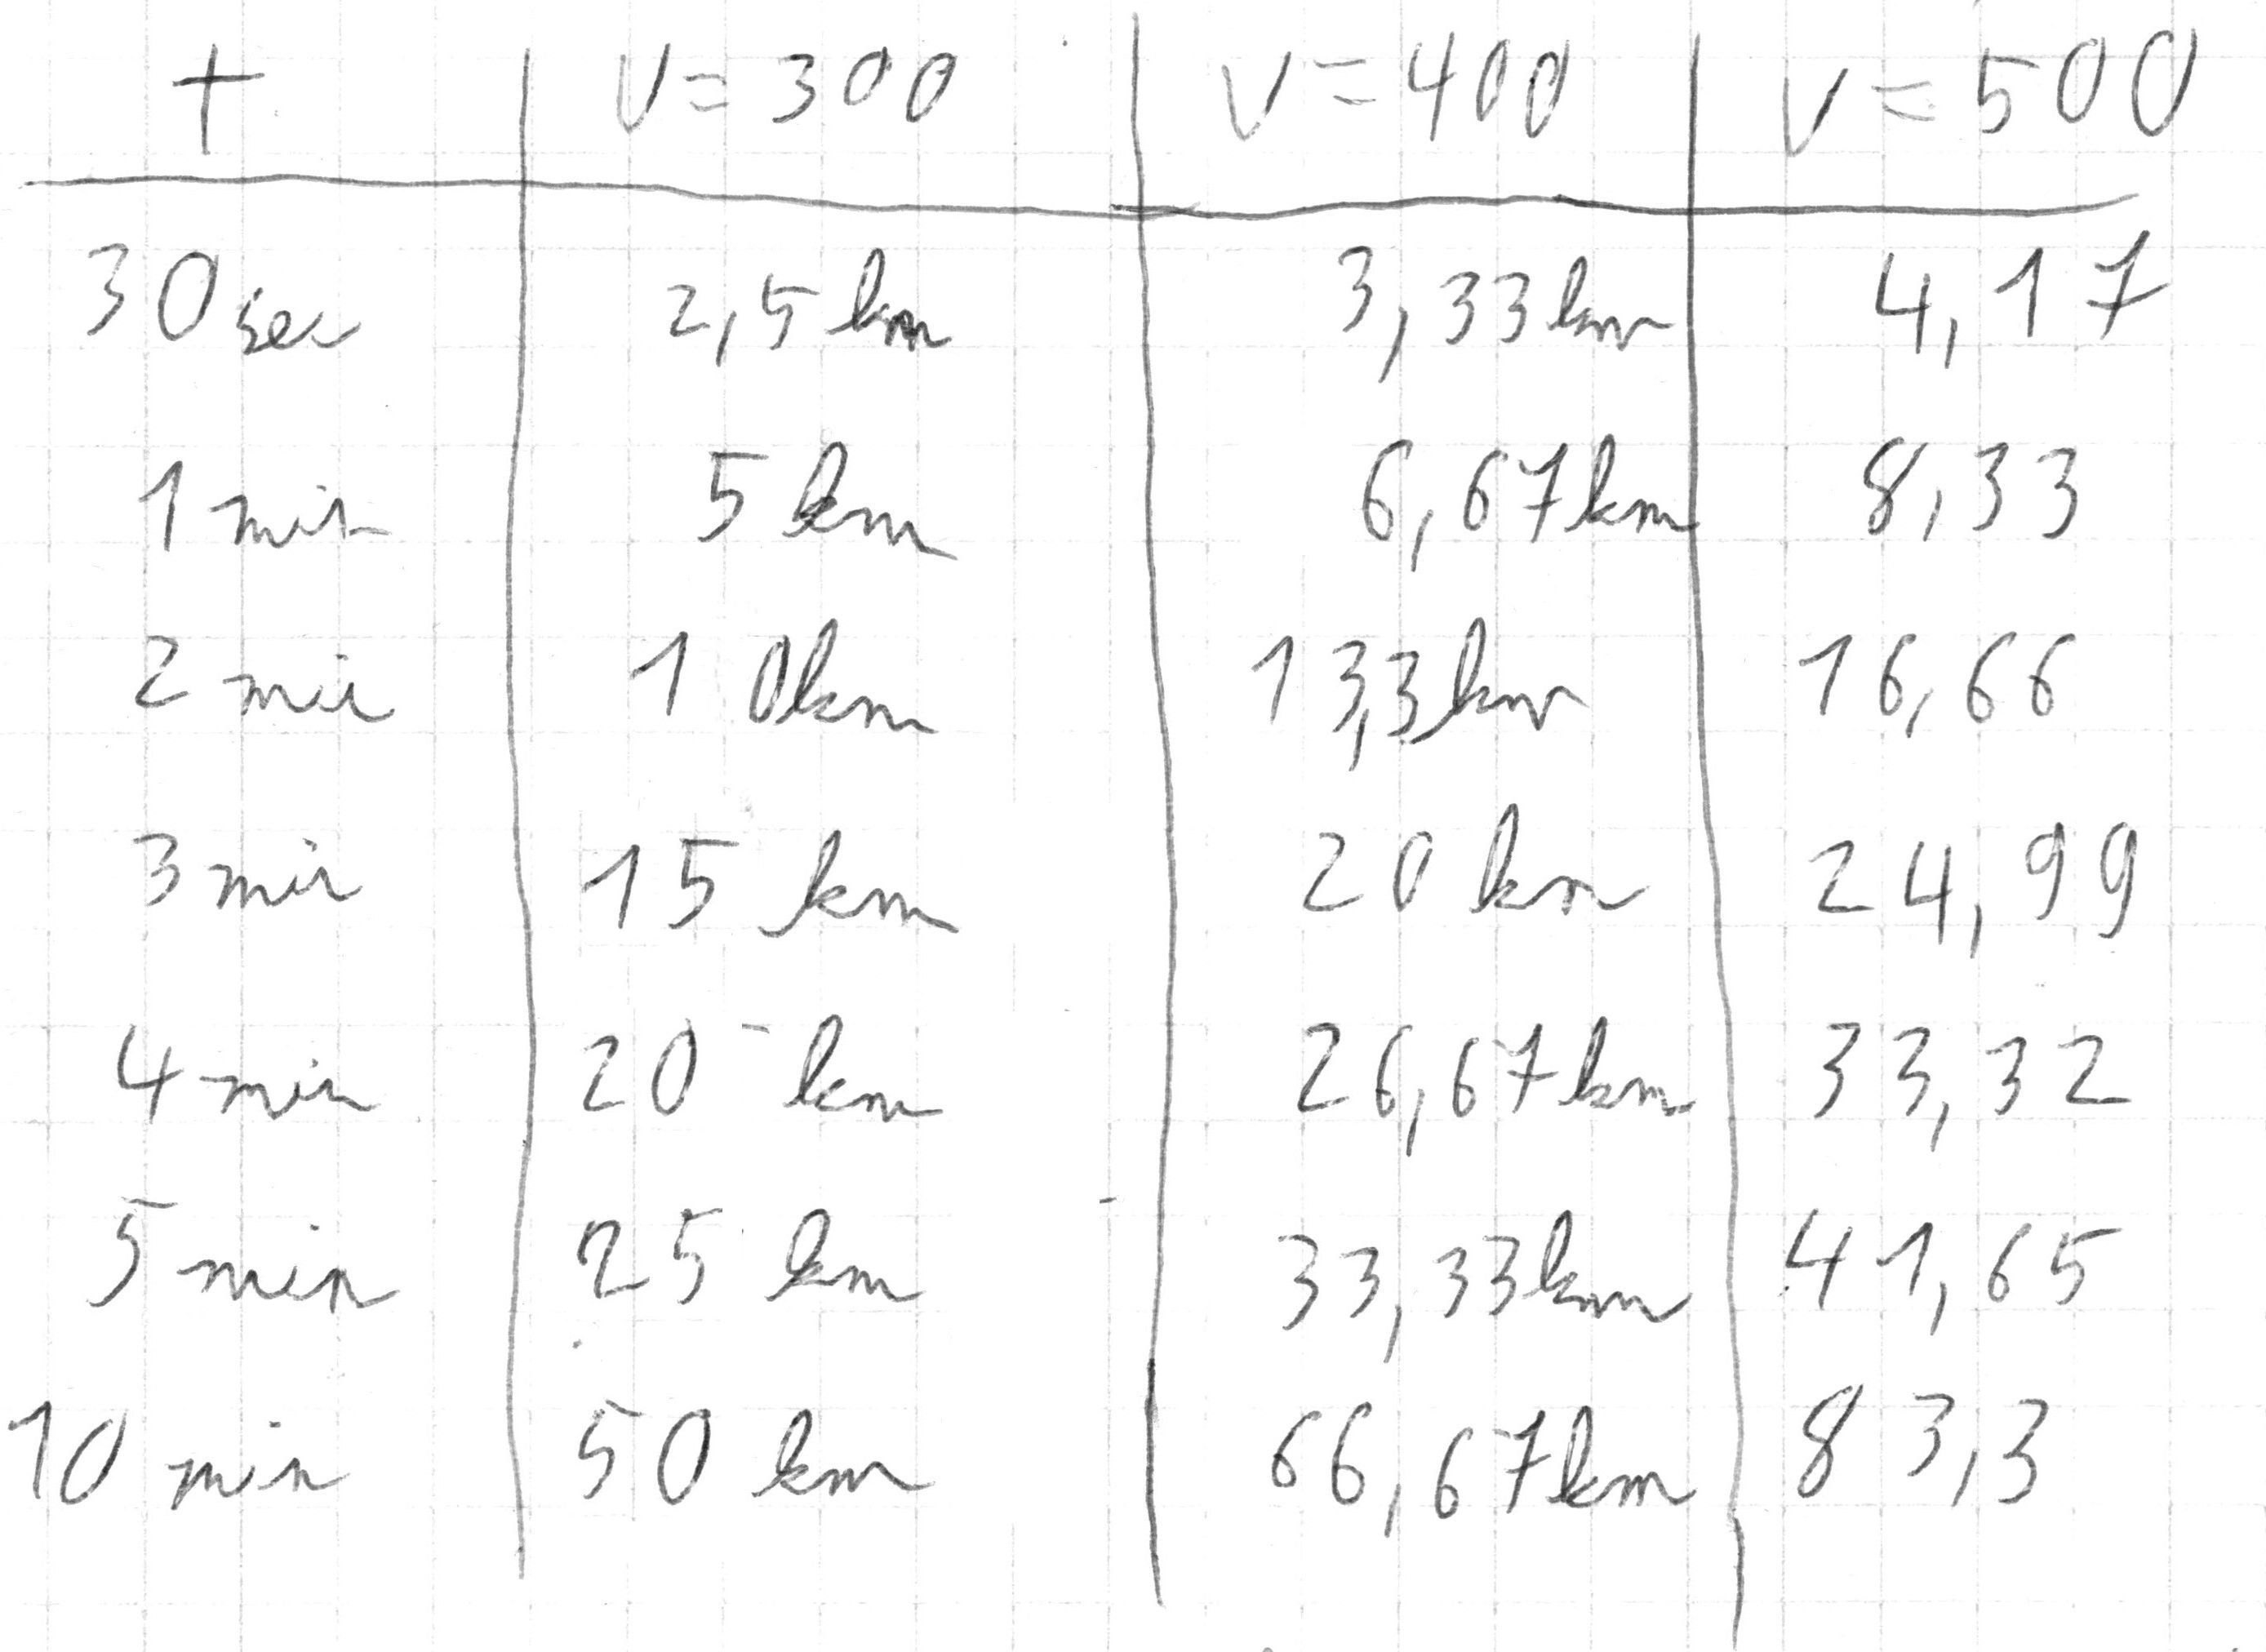 t v=300 v=400 v=500
30 sec 2,5 km 3,33 km 4,17
1 min 5 km 6,67 km 8,33
2 min 10 km 13,3 km 16,66
3 min 15 km 20 km 24,99
4 min 20 km 26,67 km 33,32
5 min 25 km 33,33 km 41,65
10 min 50 km 66,67 km 83,3